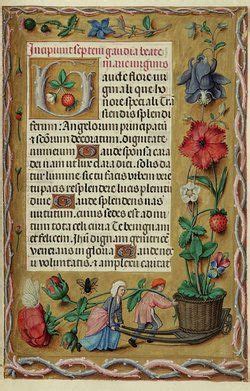 Incipiunt septem gaudia beate
marie virginis
Gaude flore vir
ginali que ho
nore speciali Trā
scendis splendi
ferum: Angelorum principatū
⁊ scōrum decoratum, Dignitate
numinum Gaude sponsa cara
dei nam ut clara dici: solis da
tur lumine sic tu facis orbem vere
tue pacis resplendere luce splendi
dissime Gaude splendens vas
virtutum, cuius sedes est ad nu
tum tota celi curia Te benignam
et felicem, Jhū dignam genitrice
venerans in gloria Gaude
xu voluntatis, ⁊ amplexu caritat